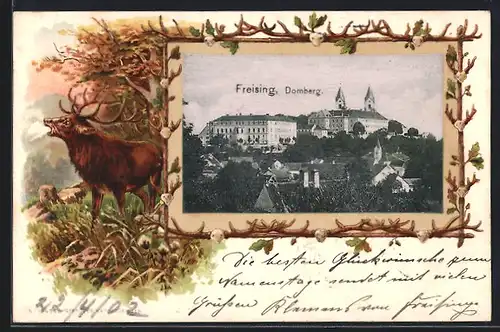 Freising, Domberg.
Die besten Glückwünsche zum
Namenstage sendet mit vielen
Grüssen Klemens von Freising
22/4/02